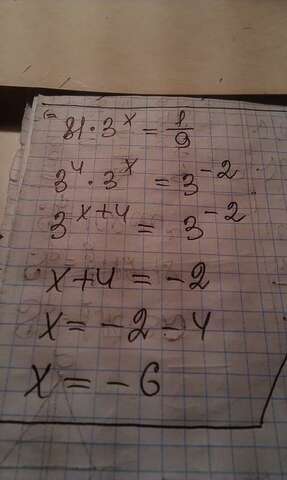 81·3^x = 1/9
3^4·3^x = 3^-2
3^x+4 = 3^-2
x+4 = -2
x = -2-4
x = -6